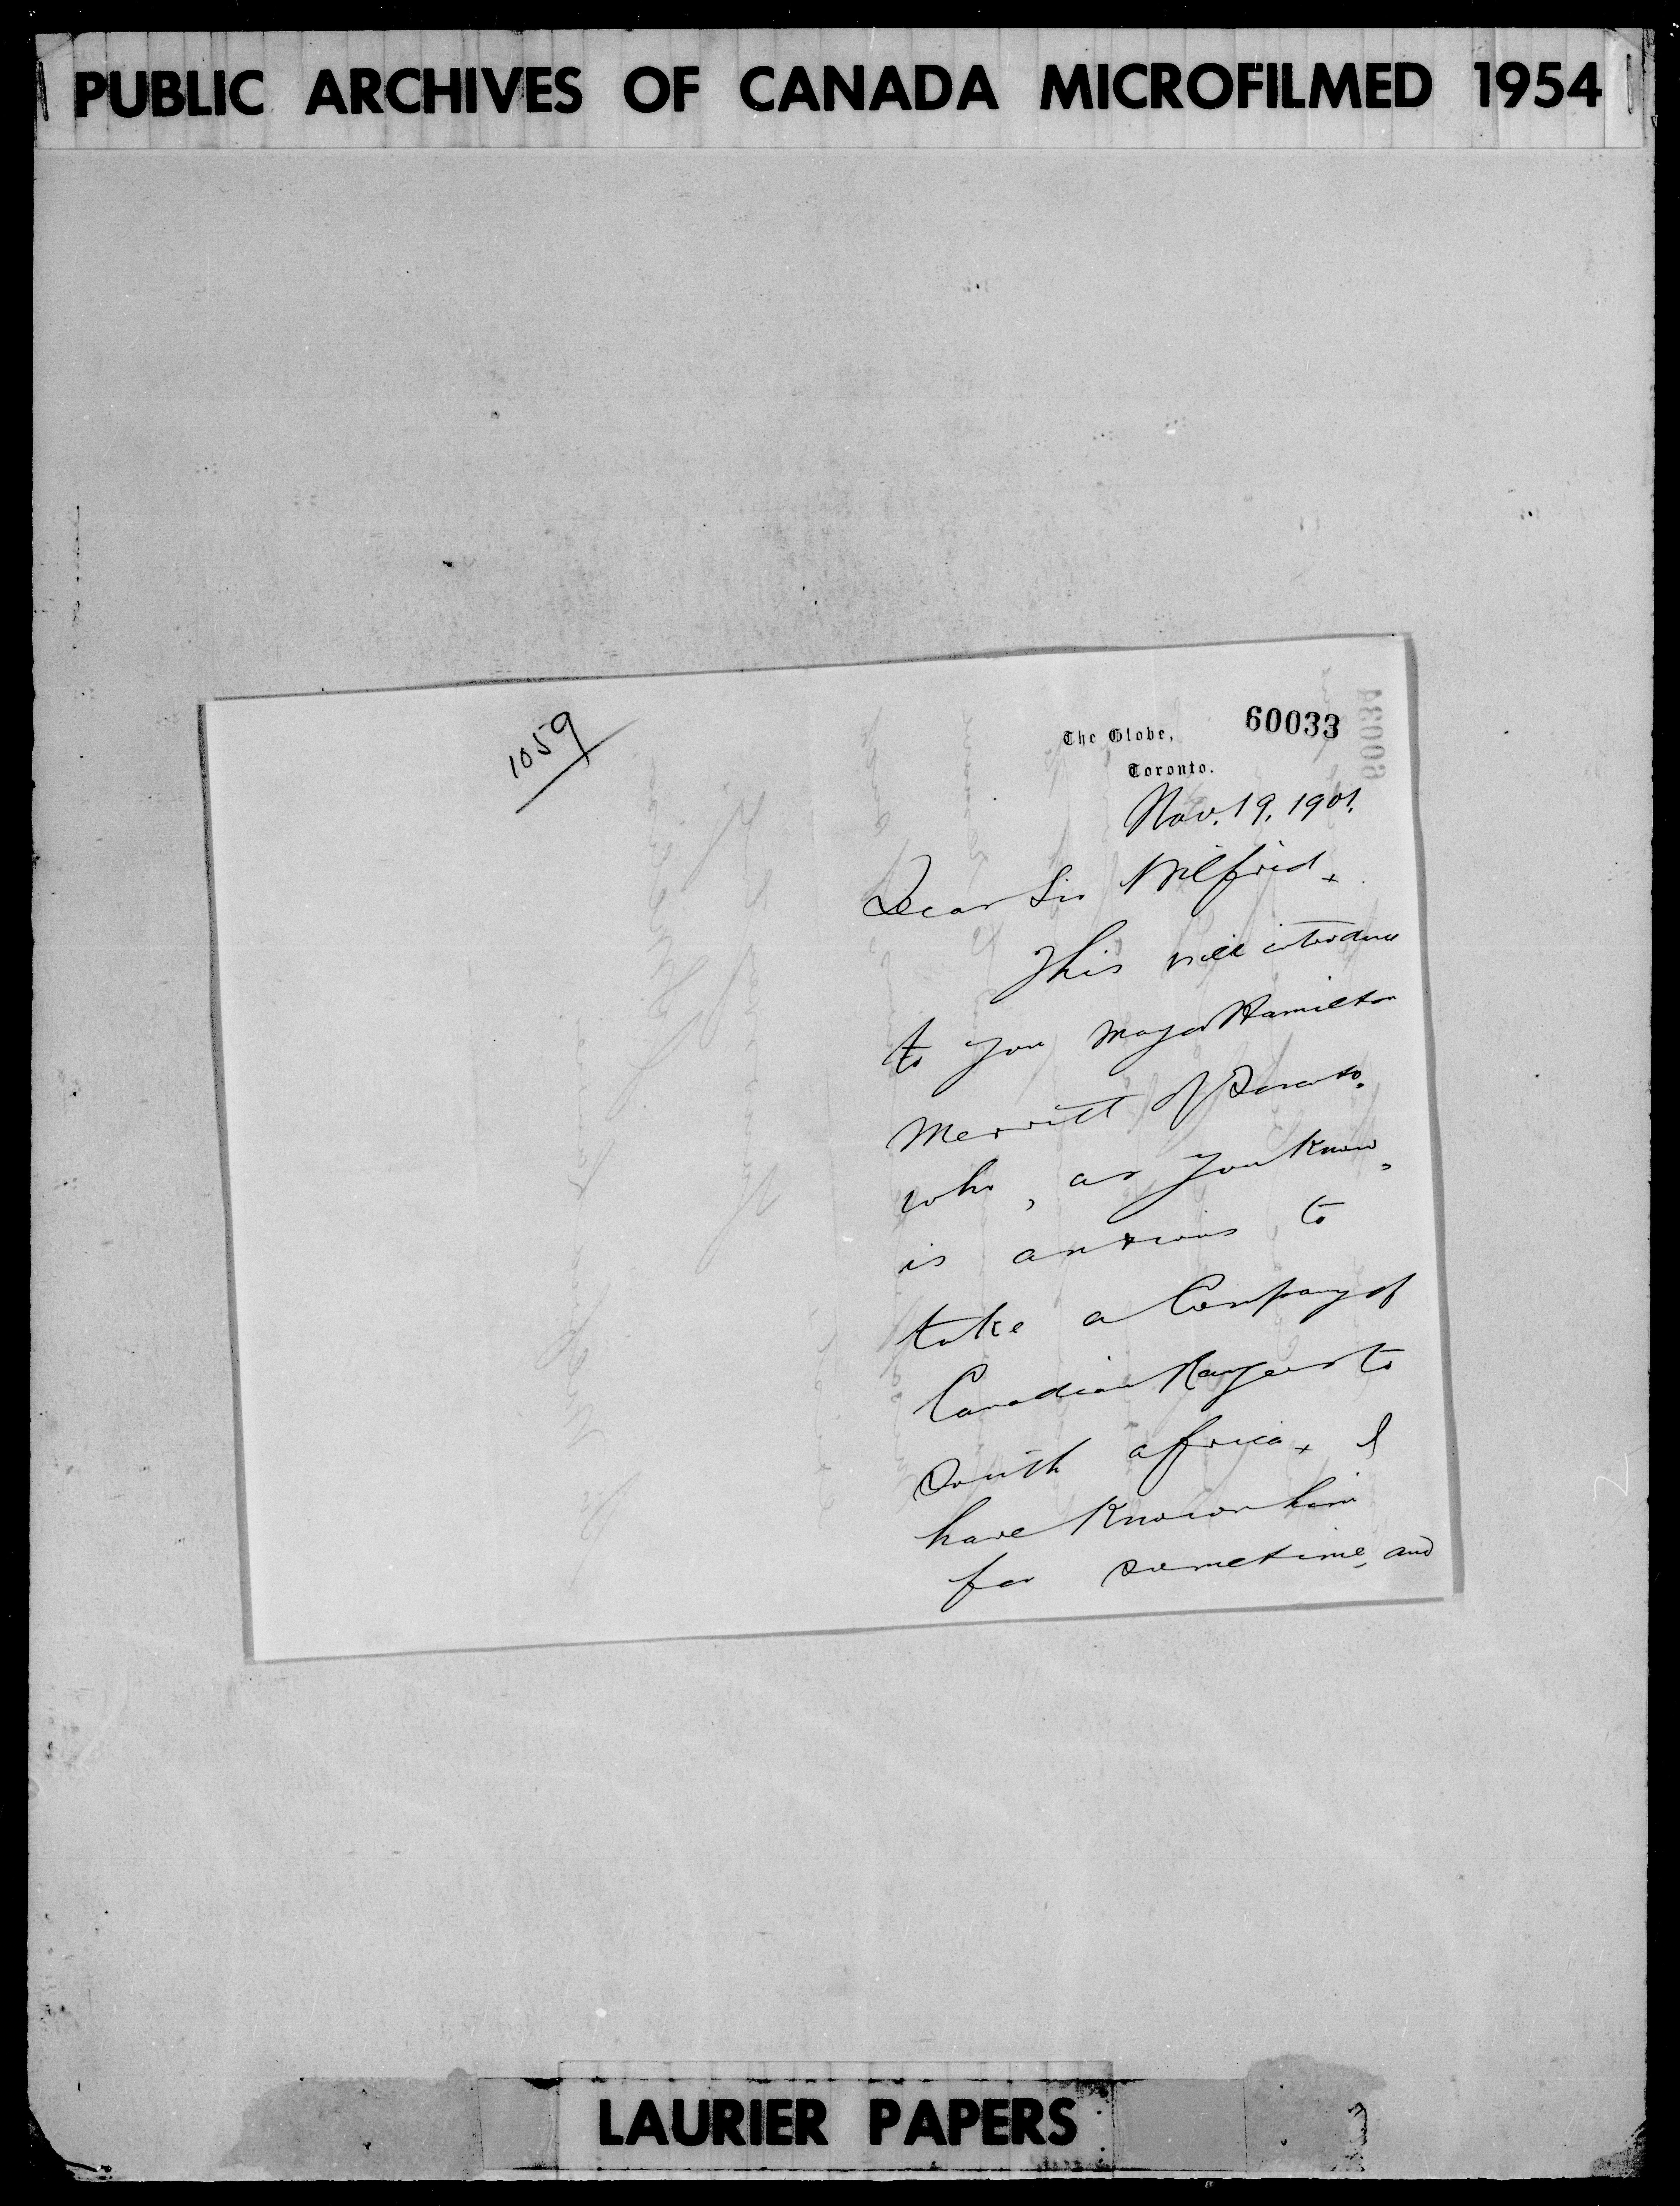 PUBLIC ARCHIVES OF CANADA MICROFILMED 1954
1059
60033
The Globe,
Toronto.
Nov. 19, 1901.
Dear Sir Wilfrid,
This will introduce
to you Major Hamilton
Merritt of Toronto,
who, as you know,
is anxious to
take a Company of
Canadian Rangers to
South Africa. I
have known him
for sometime, and
LAURIER PAPERS